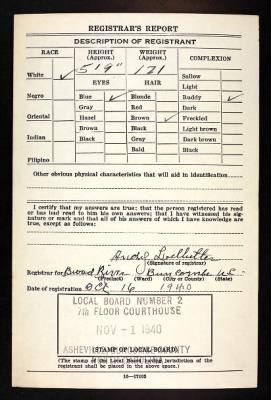 REGISTRAR'S REPORT
DESCRIPTION OF REGISTRANT
RACE HEIGHT (Approx.) WEIGHT (Approx.) COMPLEXION
White ✓ 5' 9" 121 Sallow
EYES HAIR Light
Negro Blue ✓ Blonde Ruddy ✓
Gray Red Dark
Oriental Hazel Brown ✓ Freckled
Brown Black Light brown
Indian Black Gray Dark brown
Bald Black
Filipino
Other obvious physical characteristics that will aid in identification
I certify that my answers are true; that the person registered has read
or has had read to him his own answers; that I have witnessed his
signature or mark and that all of his answers of which I have knowledge are
true, except as follows:
(Signature of registrar)
Registrar for Broad River Buncombe N.C.
(Precinct) (Ward) (City or County) (State)
Date of registration Oct 16 1940
LOCAL BOARD NUMBER 2
7th FLOOR COURTHOUSE
NOV - 1 1940
ASHEVILLE COUNTY
(STAMP OF LOCAL BOARD)
(The stamp of the Local Board having jurisdiction of the
registrant shall be placed in the above space.)